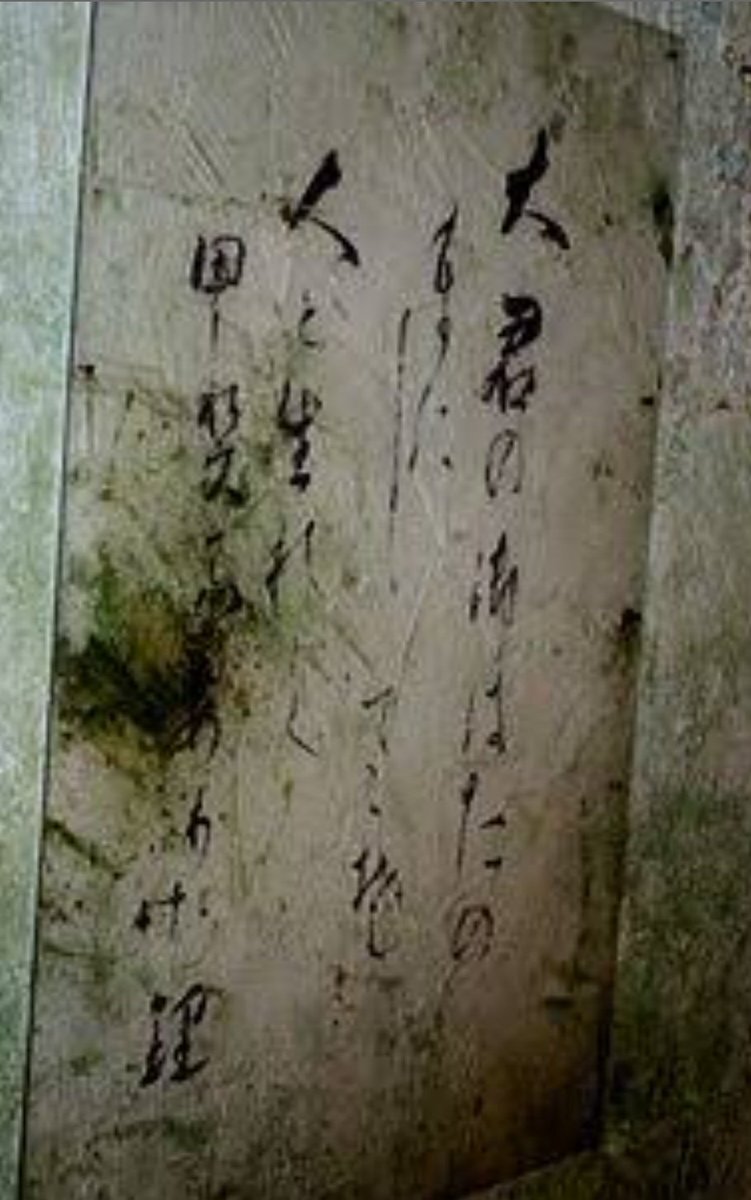 大君の御はたの
もとにしてこそ
人と生れし
甲斐ありけ理